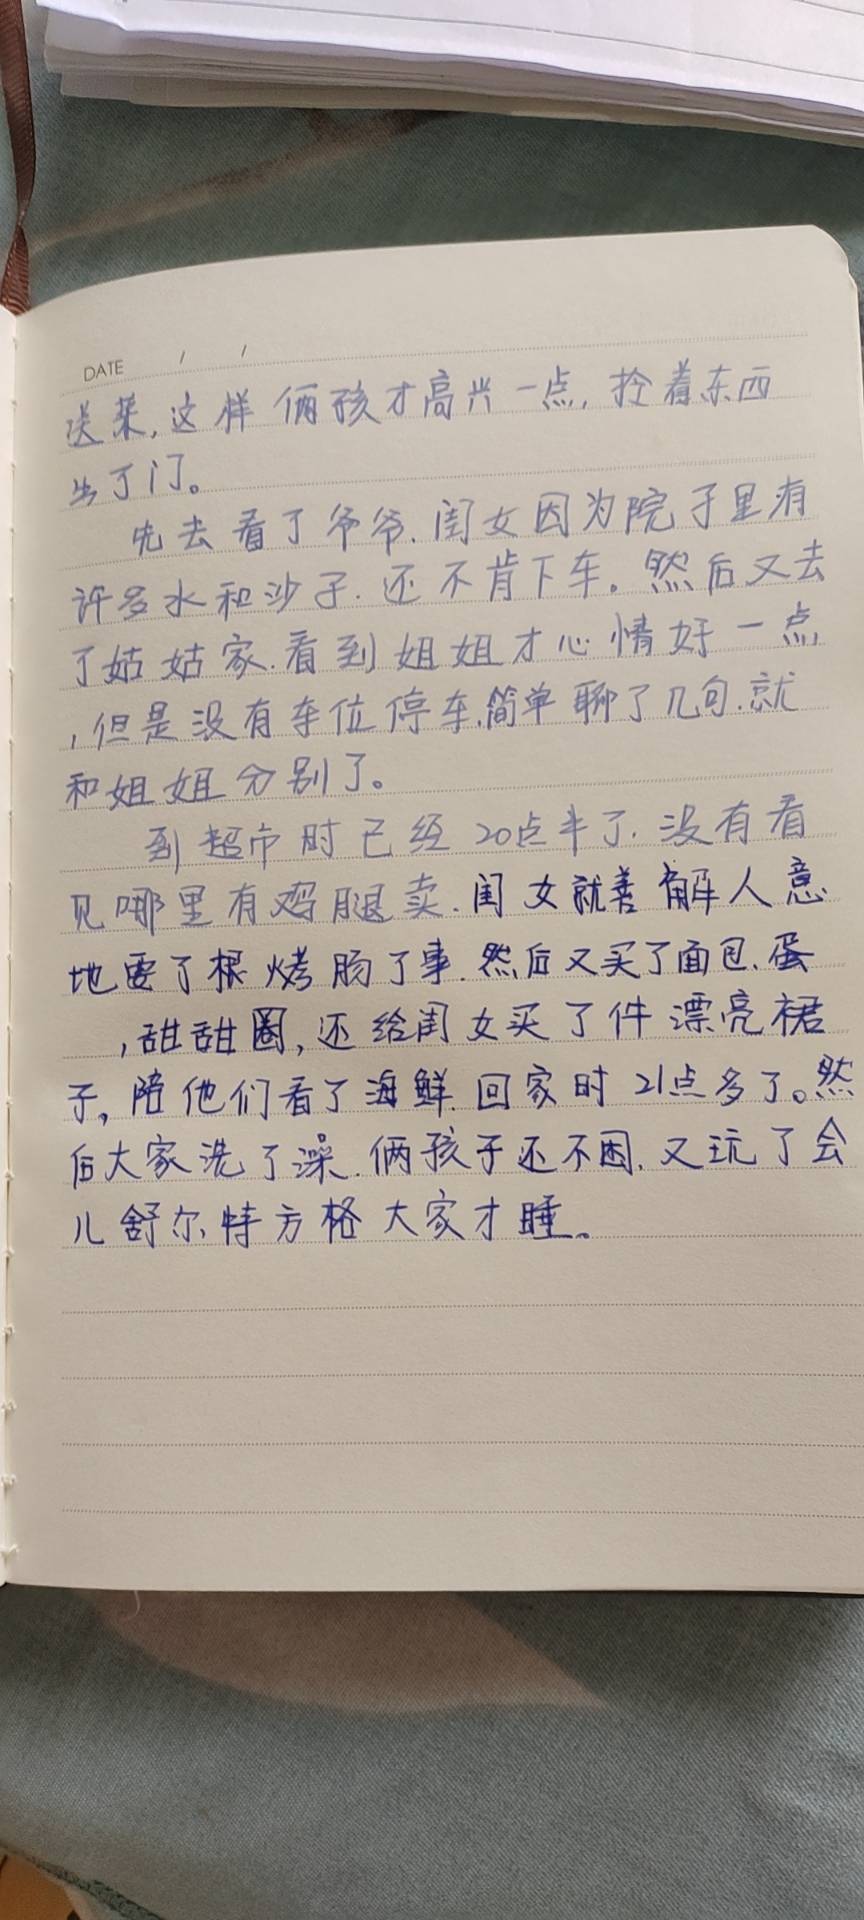 DATE / /
送菜,这样俩孩才高兴一点,拎着东西
出了门。
先去看了爷爷.闺女因为院子里有
许多水和沙子.还不肯下车。然后又去
了姑姑家.看到姐姐才心情好一点
,但是没有车位停车,简单聊了几句.就
和姐姐分别了。
到超市时已经20点半了.没有看
见哪里有鸡腿卖.闺女就善解人意
地要了根烤肠了事.然后又买了面包、蛋
,甜甜圈,还给闺女买了件漂亮裙
子,陪他们看了海鲜.回家时21点多了。然
后大家洗了澡.俩孩子还不困.又玩了会
儿舒尔特方格大家才睡。